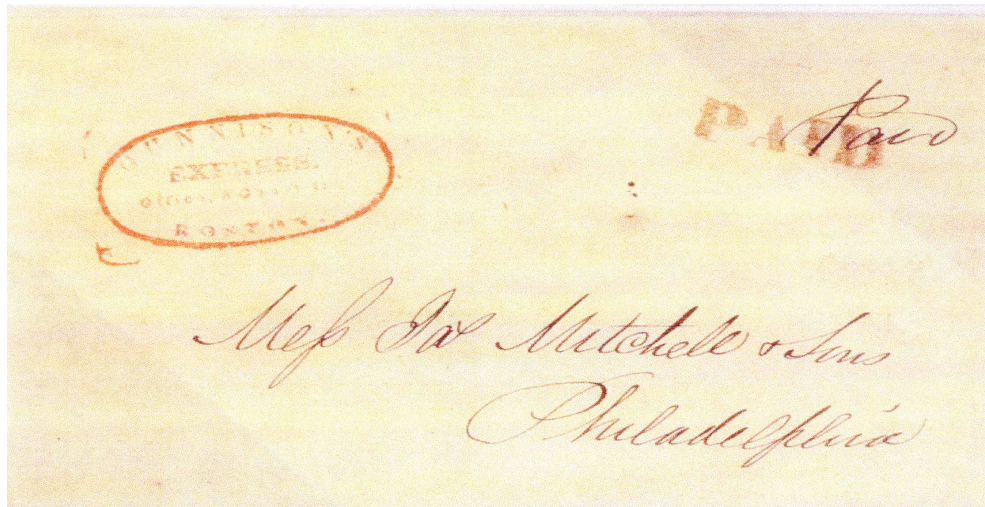 GUNNISON'S
EXPRESS.
BOSTON.
PAID
Paid
Mess Jas Mitchell & Sons
Philadelphia